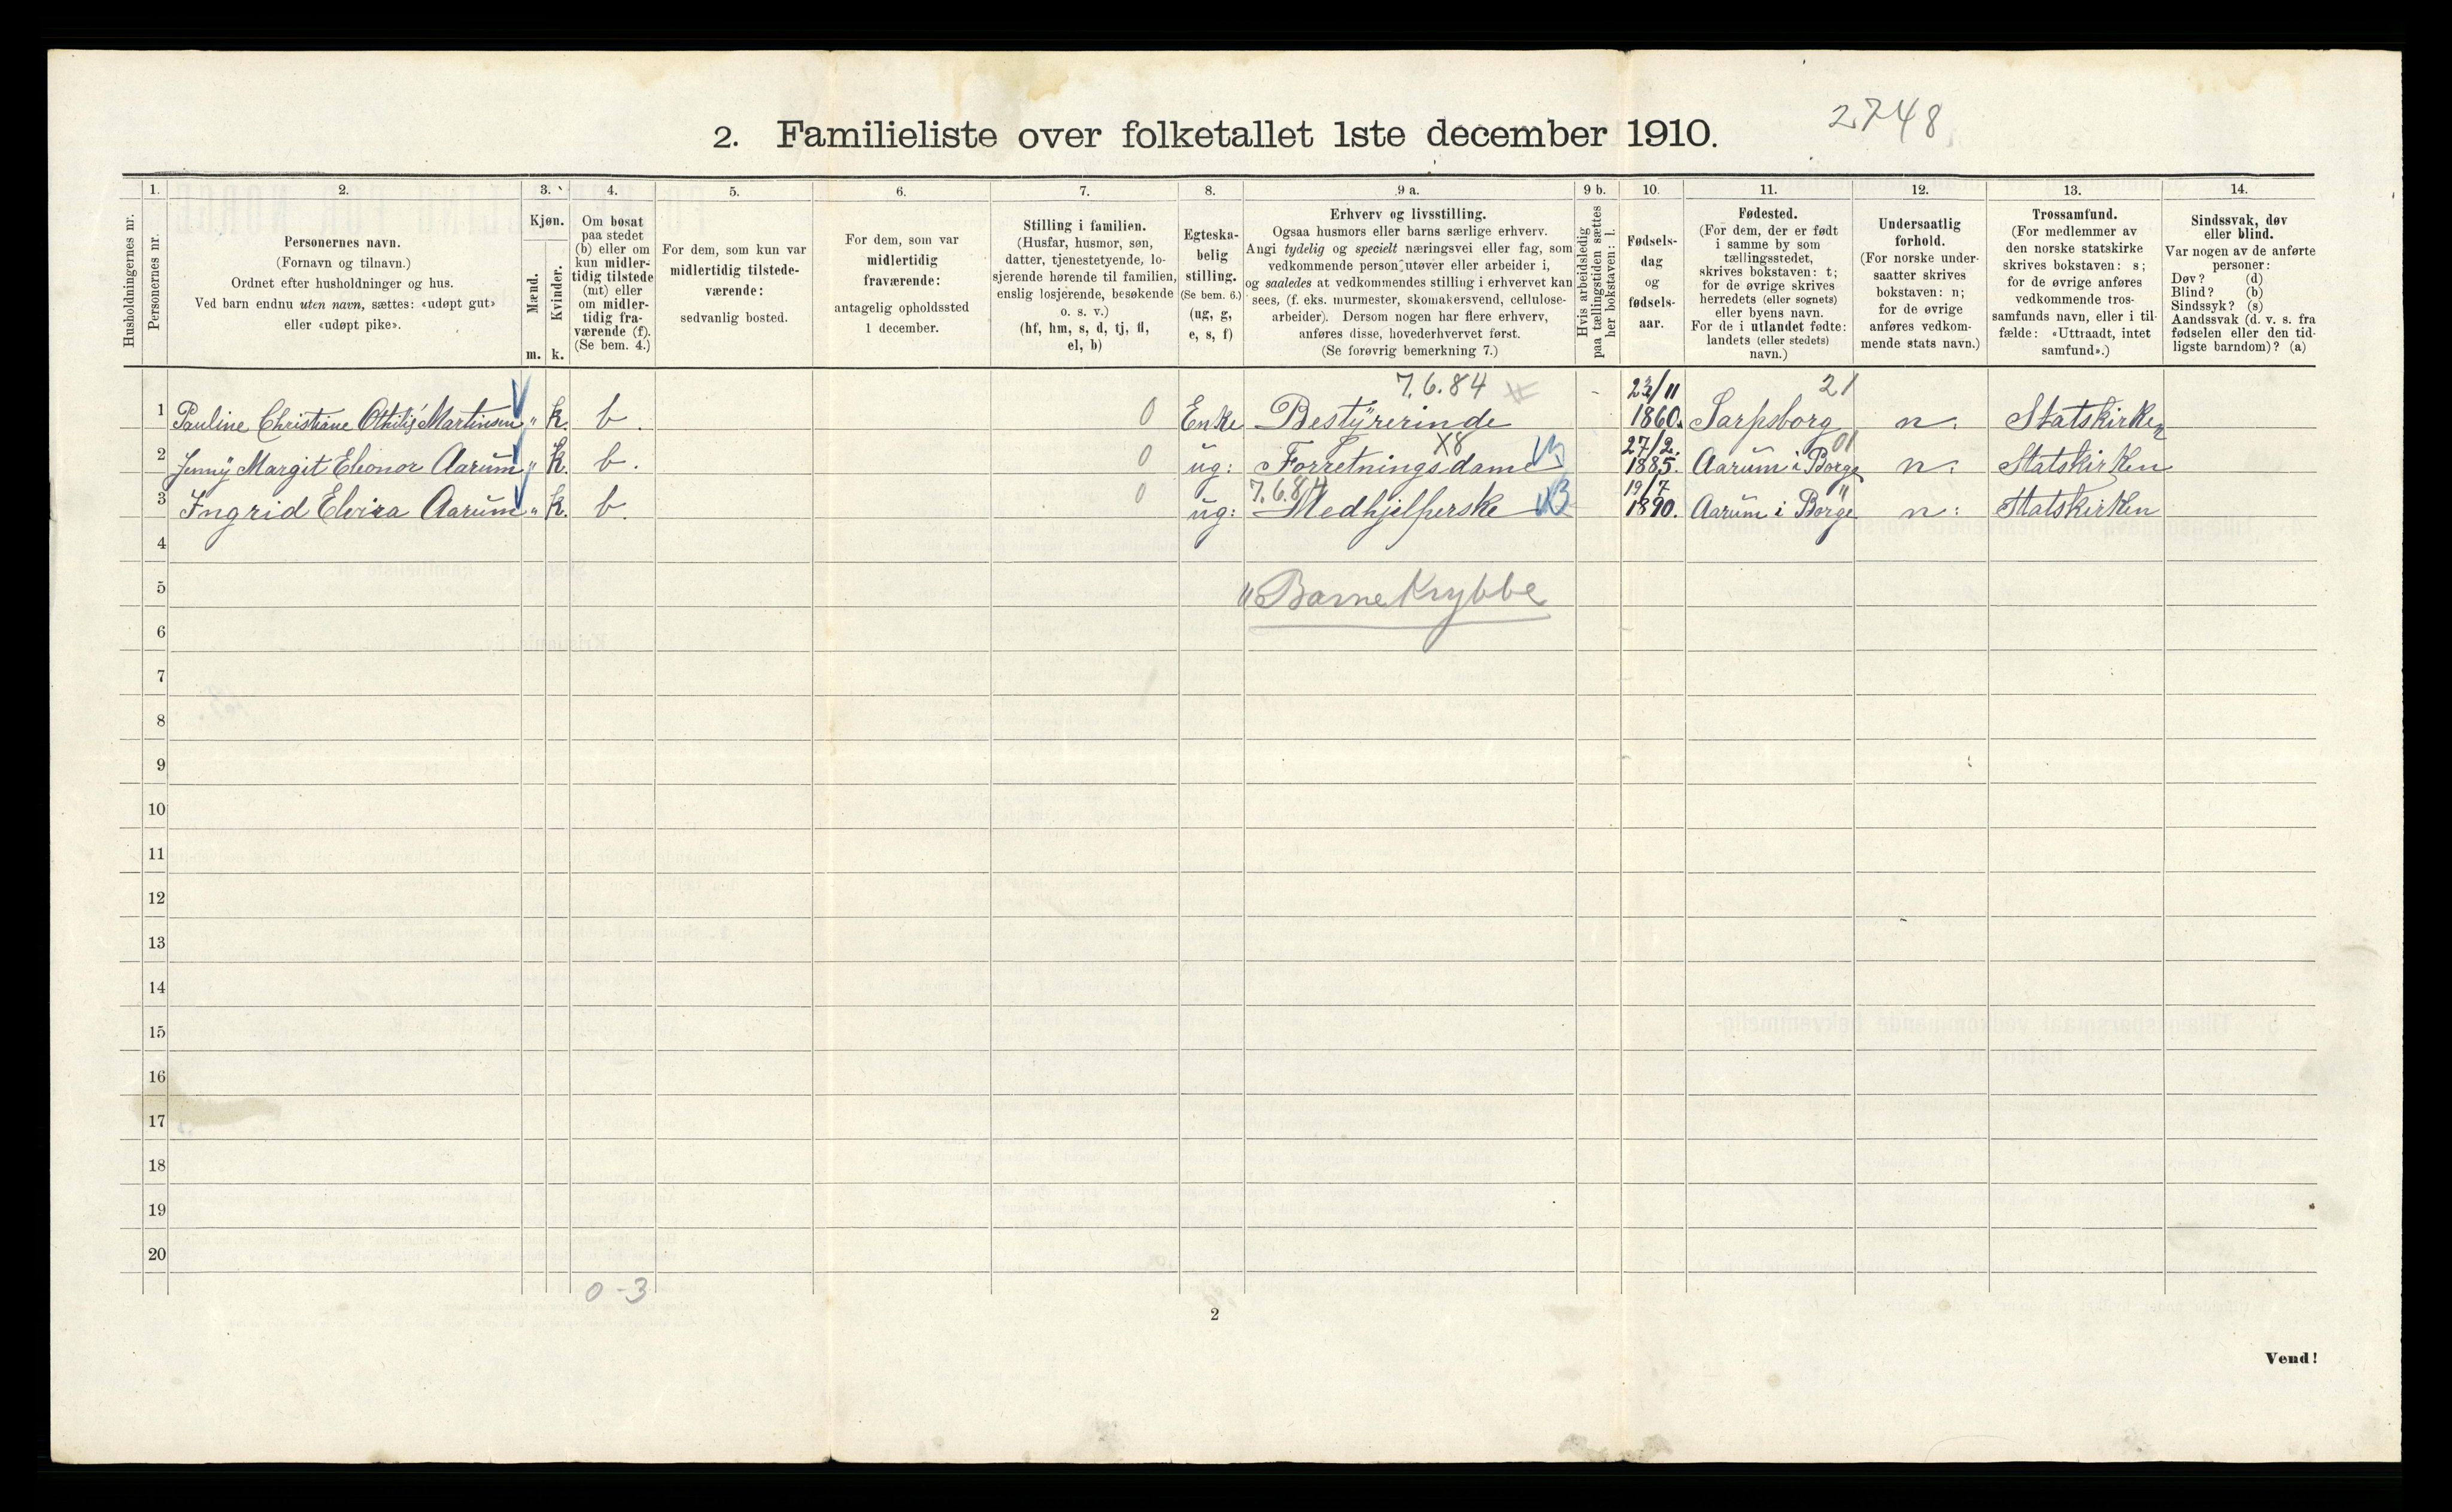 2748
2. Familieliste over folketallet 1ste december 1910.
1. 2. 3. 4. 5. 6. 7. 8. 9 a. 9 b. 10. 11. 12. 13. 14.
Husholdningernes nr.
Personernes nr.
Personernes navn.
(Fornavn og tilnavn.)
Ordnet efter husholdninger og hus.
Ved barn endnu uten navn, sættes: «udøpt gut»
eller «udøpt pike».
Kjøn.
Mænd.
Kvinder.
m. k.
Om bosat
paa stedet
(b) eller om
kun midler-
tidig tilstede
(mt) eller
om midler-
tidig fra-
værende (f).
(Se bem. 4.)
For dem, som kun var
midlertidig tilstede-
værende:
sedvanlig bosted.
For dem, som var
midlertidig
fraværende:
antagelig opholdssted
1 december.
Stilling i familien.
(Husfar, husmor, søn,
datter, tjenestetyende, lo-
sjerende hørende til familien,
enslig losjerende, besøkende
o. s. v.)
(hf, hm, s, d, tj, fl,
el, b)
Egteska-
belig
stilling.
(Se bem. 6.)
(ug, g,
e, s, f)
Erhverv og livsstilling.
Ogsaa husmors eller barns særlige erhverv.
Angi tydelig og specielt næringsvei eller fag, som
vedkommende person utøver eller arbeider i,
og saaledes at vedkommendes stilling i erhvervet kan
sees, (f. eks. murmester, skomakersvend, cellulose-
arbeider). Dersom nogen har flere erhverv,
anføres disse, hovederhvervet først.
(Se forøvrig bemerkning 7.)
Hvis arbeidsledig
paa tællingstiden sættes
her bokstaven: l.
Fødsels-
dag
og
fødsels-
aar.
Fødested.
(For dem, der er født
i samme by som
tællingsstedet,
skrives bokstaven: t;
for de øvrige skrives
herredets (eller sognets)
eller byens navn.
For de i utlandet fødte:
landets (eller stedets)
navn.)
Undersaatlig
forhold.
(For norske under-
saatter skrives
bokstaven: n;
for de øvrige
anføres vedkom-
mende stats navn.)
Trossamfund.
(For medlemmer av
den norske statskirke
skrives bokstaven: s;
for de øvrige anføres
vedkommende tros-
samfunds navn, eller i til-
fælde: «Uttraadt, intet
samfund».)
Sindssvak, døv
eller blind.
Var nogen av de anførte
personer:
Døv? (d)
Blind? (b)
Sindssyk? (s)
Aandssvak (d. v. s. fra
fødselen eller den tid-
ligste barndom)? (a)
7.6.84 21
1 Pauline Christiane Othilie Martinsen " k. b. 0 Enke Bestyrerinde - 23/11 1860. Sarpsborg n. Statskirken
X8 01
2 Jenny Margit Eleonor Aarum " k. b. 0 ug: Forretningsdame 27/2. 1885. Aarum i Borge n. Statskirken
7.6.84 "
3 Ingrid Elvira Aarum " k. b. 0 ug: Medhjelperske 19/7 1890. Aarum i Borge n: Statskirken
4
5 "BarneKrybbe
6
7
8
9
10
11
12
13
14
15
16
17
18
19
20
0-3
2
Vend!